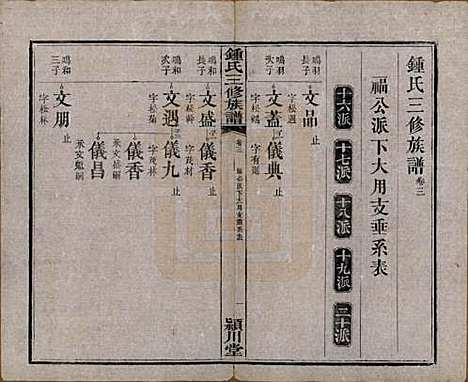 鍾氏三修族譜 卷三
福公派下大用支垂系表
十六派 十七派 十八派 十九派 二十派
鳴羽長子 文品 止
字松週
鳴羽次子 文蓋 儀典 止
字松 字有廷
鍾氏三修族譜
卷三 福公派下大用支垂系表
一 潁川堂
鳴和長子 文盛 儀香 止
字松幹 字茂材
鳴和次子 文遇 儀九 止
字松 字茂林
儀香
承文 嗣
鳴和三子 文朋 儀昌
字松林 承文魁嗣